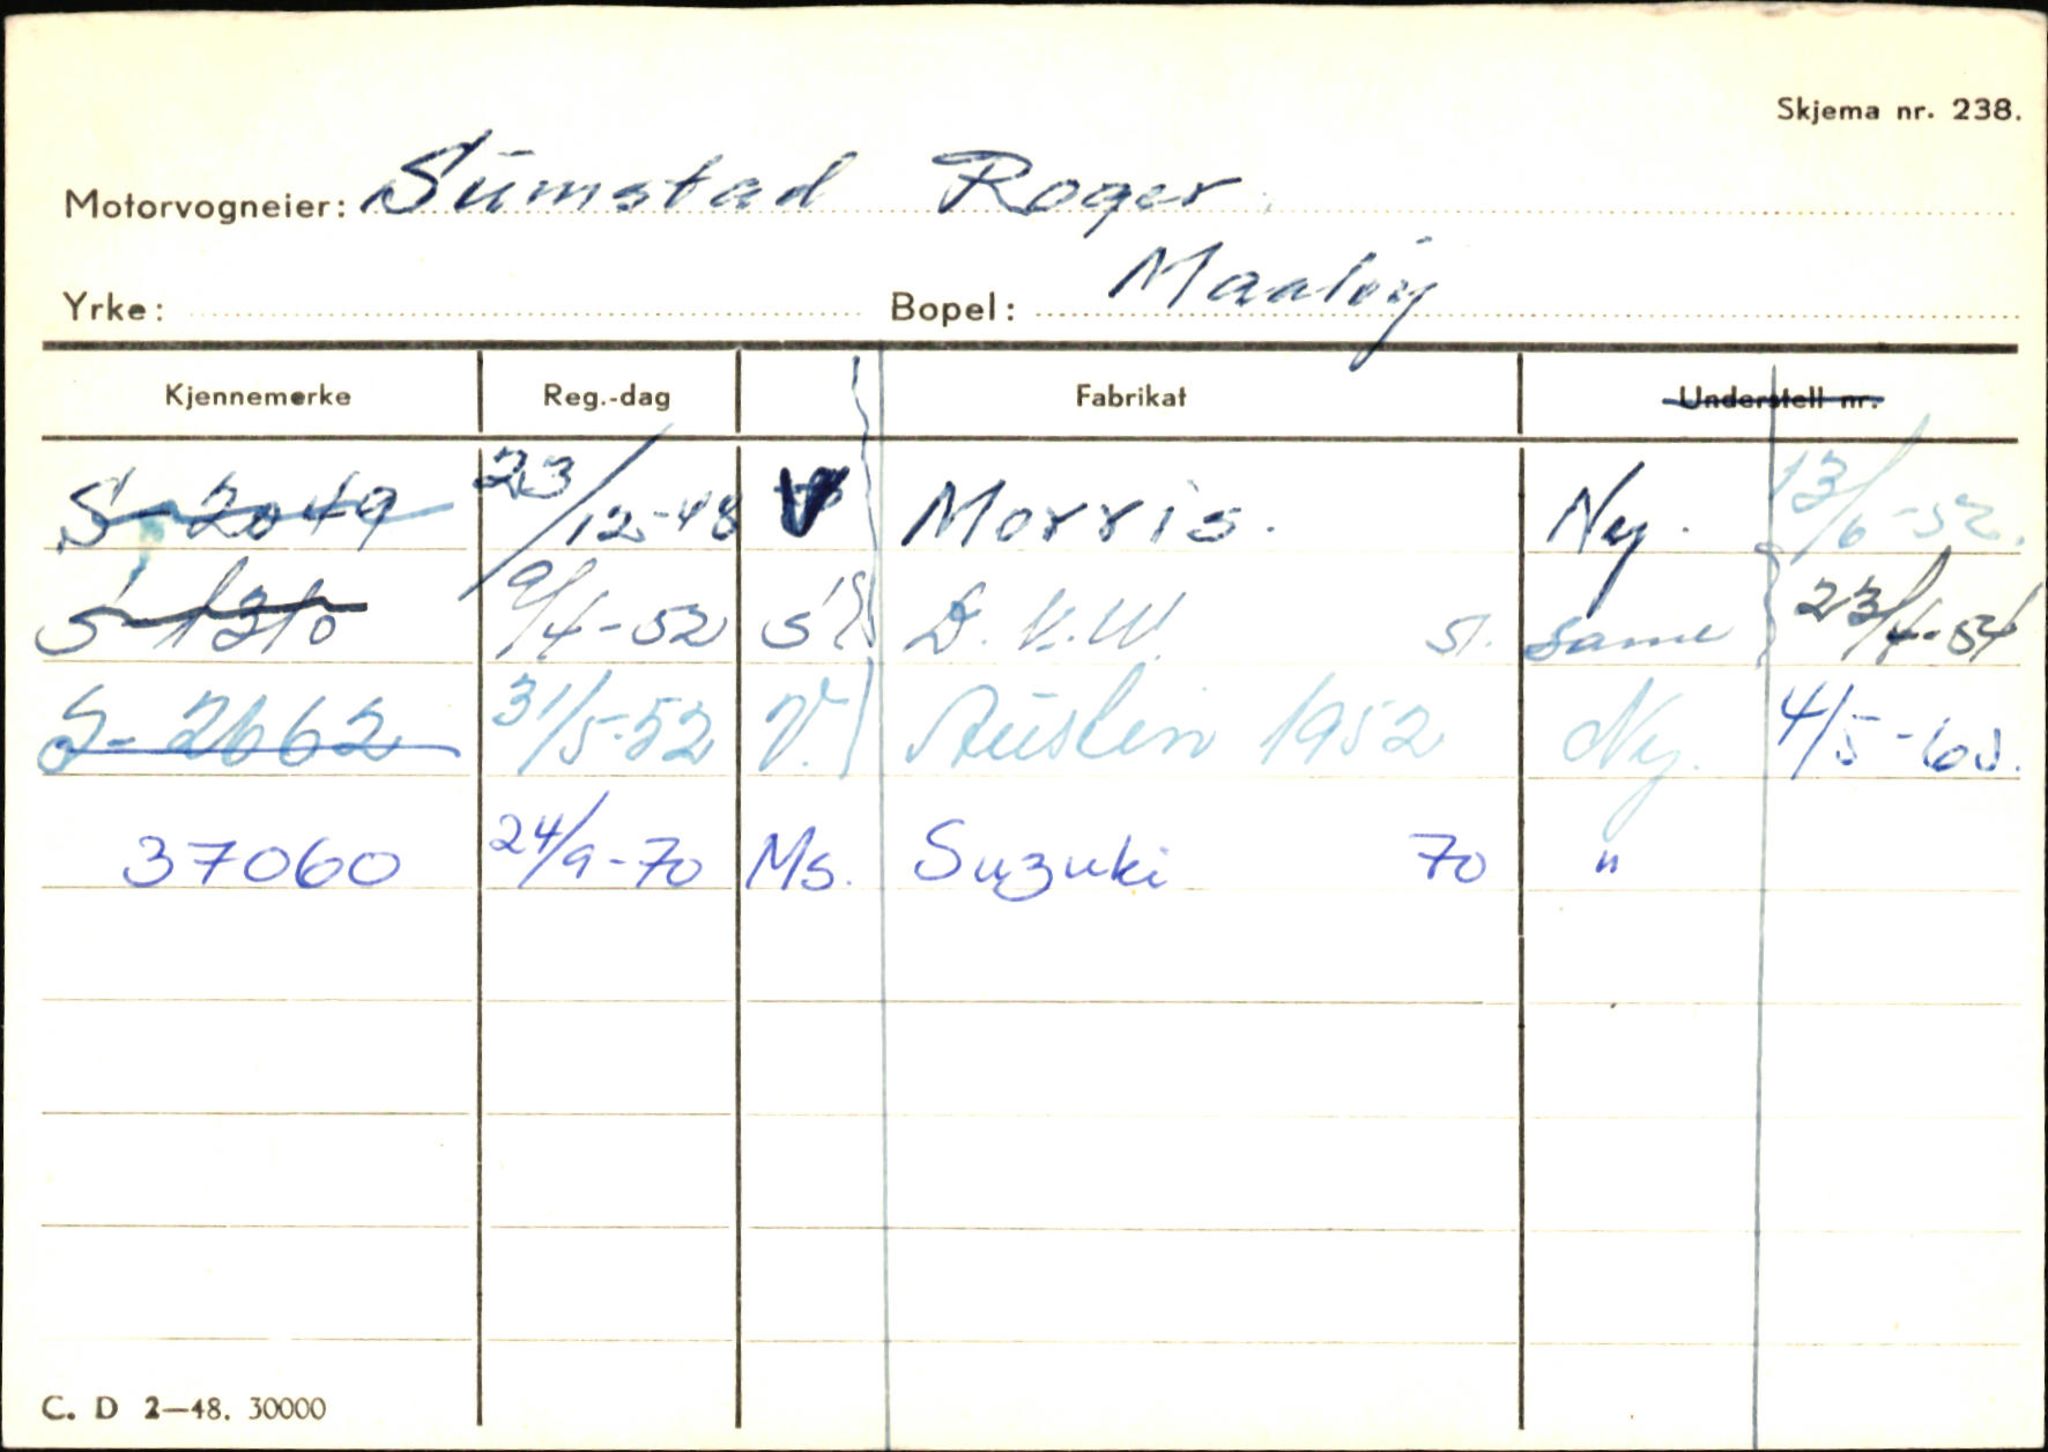 Skjema nr. 238.
Motorvogneier: Sumstad Roger.
Yrke: Bopel: Maaløy
Kjennemerke Reg.-dag Fabrikat Understell nr.
S-2049 23/12-48 V Morris. Ny. 13/6-52.
S-1310 9/4-52 D.K.W. st. same 23/4-54
S-2662 31/5-52 V. Austin 1952 Ny. 4/5-60.
37060 24/9-70 Ms. Suzuki 70 "
C. D 2—48. 30000